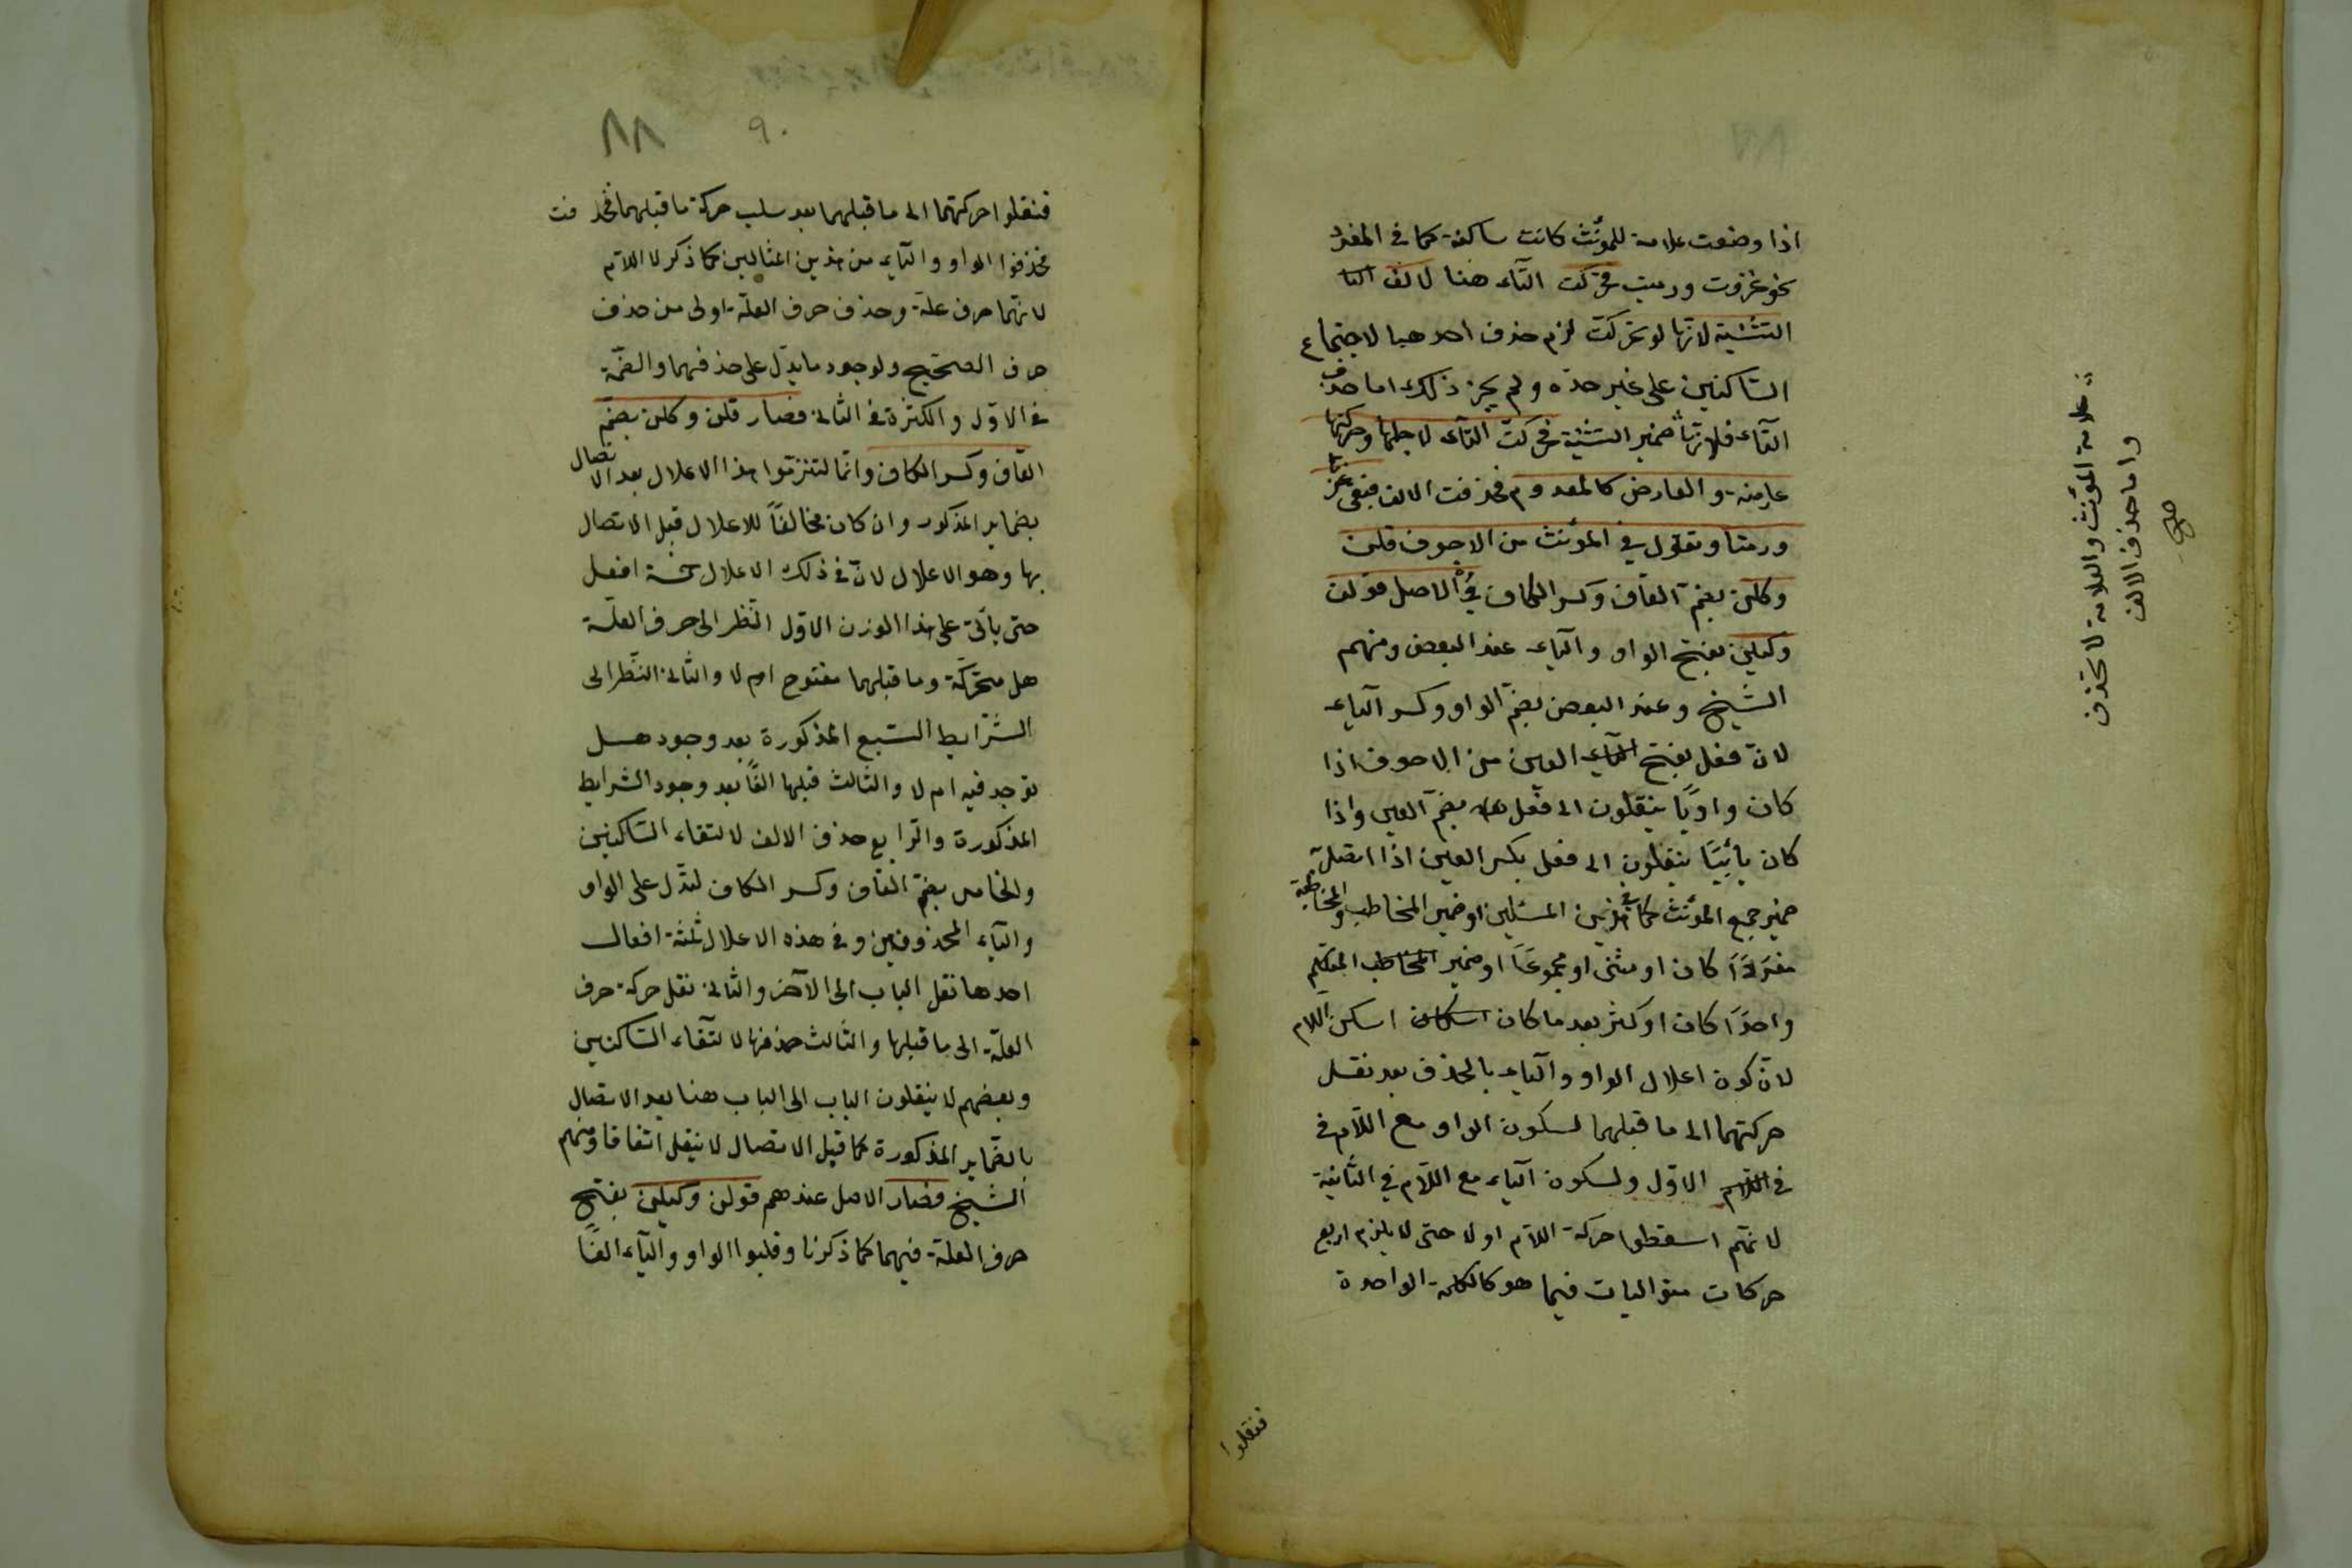 اذا وضعت علامة للمؤنث كانت ساكنة كما في المفرد
نحو غزوت ورميت فحركت التاء هنا لالف التا
التثنية لانها لو تحركت لزم حذف احدهما لاجتماع
الساكنين على غير حده ولم يجز ذلك اما حذف
التاء فلانها ضمير التثنية فحركت التاء لاجلها وحركتها
عارضة والعارض كالمعدوم فحذفت الالف فبقى غزتا
ورمتا وتقول في المؤنث من الاجوف قلن
وكلن بضم القاف وكسر الكاف في الاصل قولن
وكيلن بفتح الواو والياء عند البعض ومنهم
الشيخ وعند البعض بضم الواو وكسر الياء
لان فعل بفتح الياء العين من الاجوف اذا
كان واويا ينقلون الى فعل بضم العين واذا
كان يائيا ينقلون الى فعل بكسر العين اذا اتصل
ضمير جمع المؤنث كما في هذين المثلين او ضمير المخاطب والمخاطبة
مفردا كان او مثنى او مجموعا او ضمير المخاطب المتكلم
واحدا كان او كثر بعد ما كان اسكان اسكن اللام
لان كون اعلال الواو والياء بالحذف بعد نقل
حركتهما الى ما قبلهما لسكون الواو مع اللام في
في اللام الاول ولسكون الياء مع اللام في الثانية
لانهم اسقطوا حركة اللام اولا حتى لا يلزم اربع
حركات متواليات فيما هو كالكلمة الواحدة
فنقلوا
علامة المؤنث والعلامة لا تحذف
واما حذف الالف
صح
٨٨ ٩٠
فنقلوا حركتهما الى ما قبلهما بعد سلب حركة ما قبلهما فحذفت
فحذفوا الواو والياء من هذين المثالين كما ذكر لا اللام
لانهما حرف علة وحذف حرف العلة اولى من حذف
حرف الصحيح ولوجود ما يدل على حذفهما والضمة
في الاول والكسرة في الثاني فصار قلن وكلن بضم
القاف وكسر الكاف وانما لتنزموا هذا الاعلال بعد الاتصال
بضماير المذكور وان كان مخالفا للاعلال قبل الاتصال
بها وهو الاعلال لان في ذلك الاعلال خمسة افعل
حتى يأتى على هذا الوزن الاول النظر الى حرف العلة
هل متحركة وما قبلهما مفتوح ام لا والثاني النظر الى
الشرايط السبع المذكورة بعد وجود هل
توجد فيه ام لا والثالث قبلها الفا بعد وجود الشرايط
المذكورة والرابع حذف الالف لالتقاء الساكنين
والخامس بضم القاف وكسر الكاف لتدل على الواو
والياء المحذوفين وفي هذه الاعلال ثلثة افعال
احدها نقل الباب الى الآخر والثاني نقل حركة حرف
العلة الى ما قبلها والثالث حذفها لالتقاء الساكنين
وبعضهم لا ينقلون الباب الى الباب هنا بعد الاتصال
بالضماير المذكورة كما قبل الاتصال لا ينقل اتفاقا ومنهم
الشيخ فصار الاصل عندهم قولن وكيلن بفتح
حرف العلة فيهما كما ذكرنا وقلبوا الواو والياء الفا